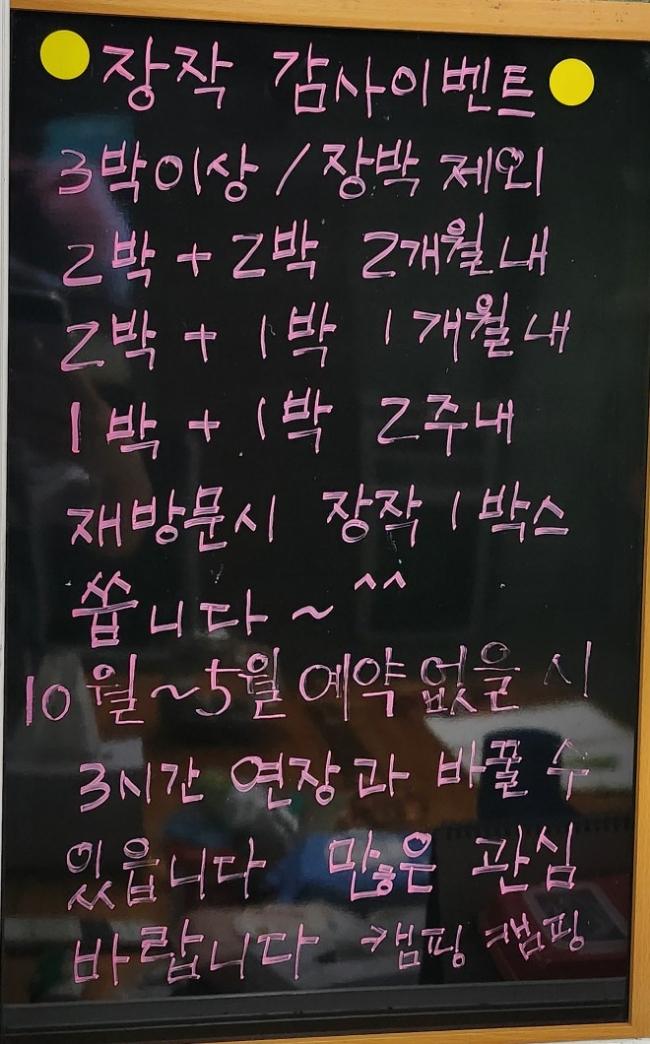 장작 감사이벤트
3박이상 / 장박 제외
2박 + 2박 2개월내
2박 + 1박 1개월내
1박 + 1박 2주내
재방문시 장작 1박스
쏩니다 ~ ^^
10월~5월 예약 없을 시
3시간 연장과 바꿀 수
있읍니다 많은 관심
바랍니다 캠핑 캠핑